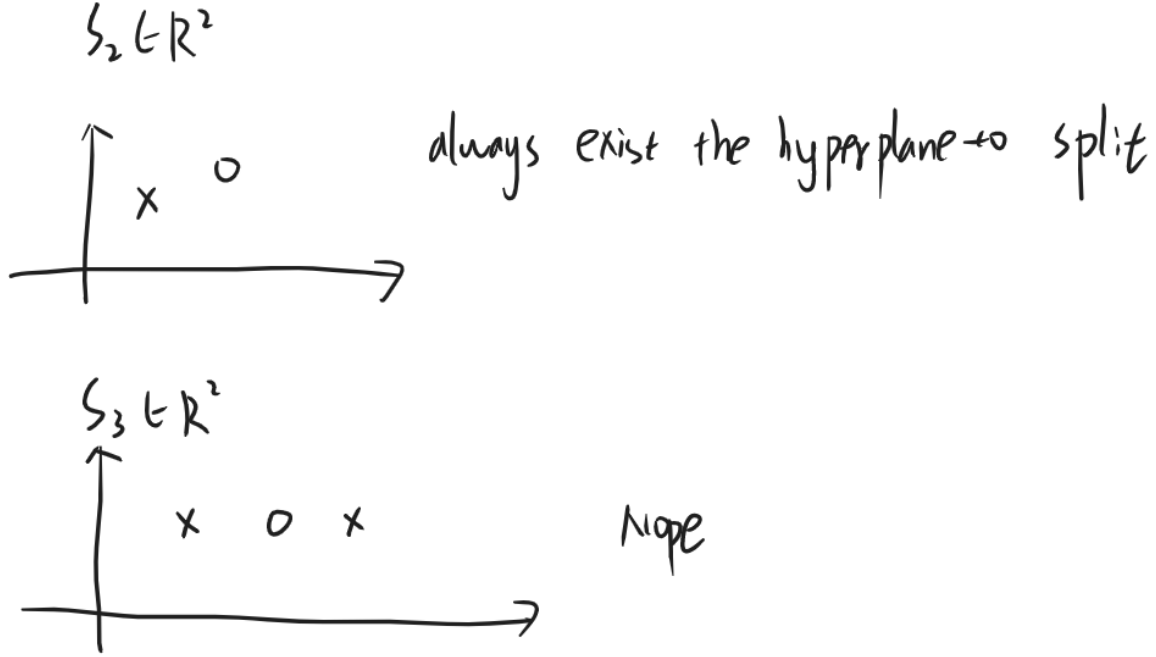 S₂ ∈ R²
always exist the hyperplane to split
x o
S₃ ∈ R²
x o x
Nope